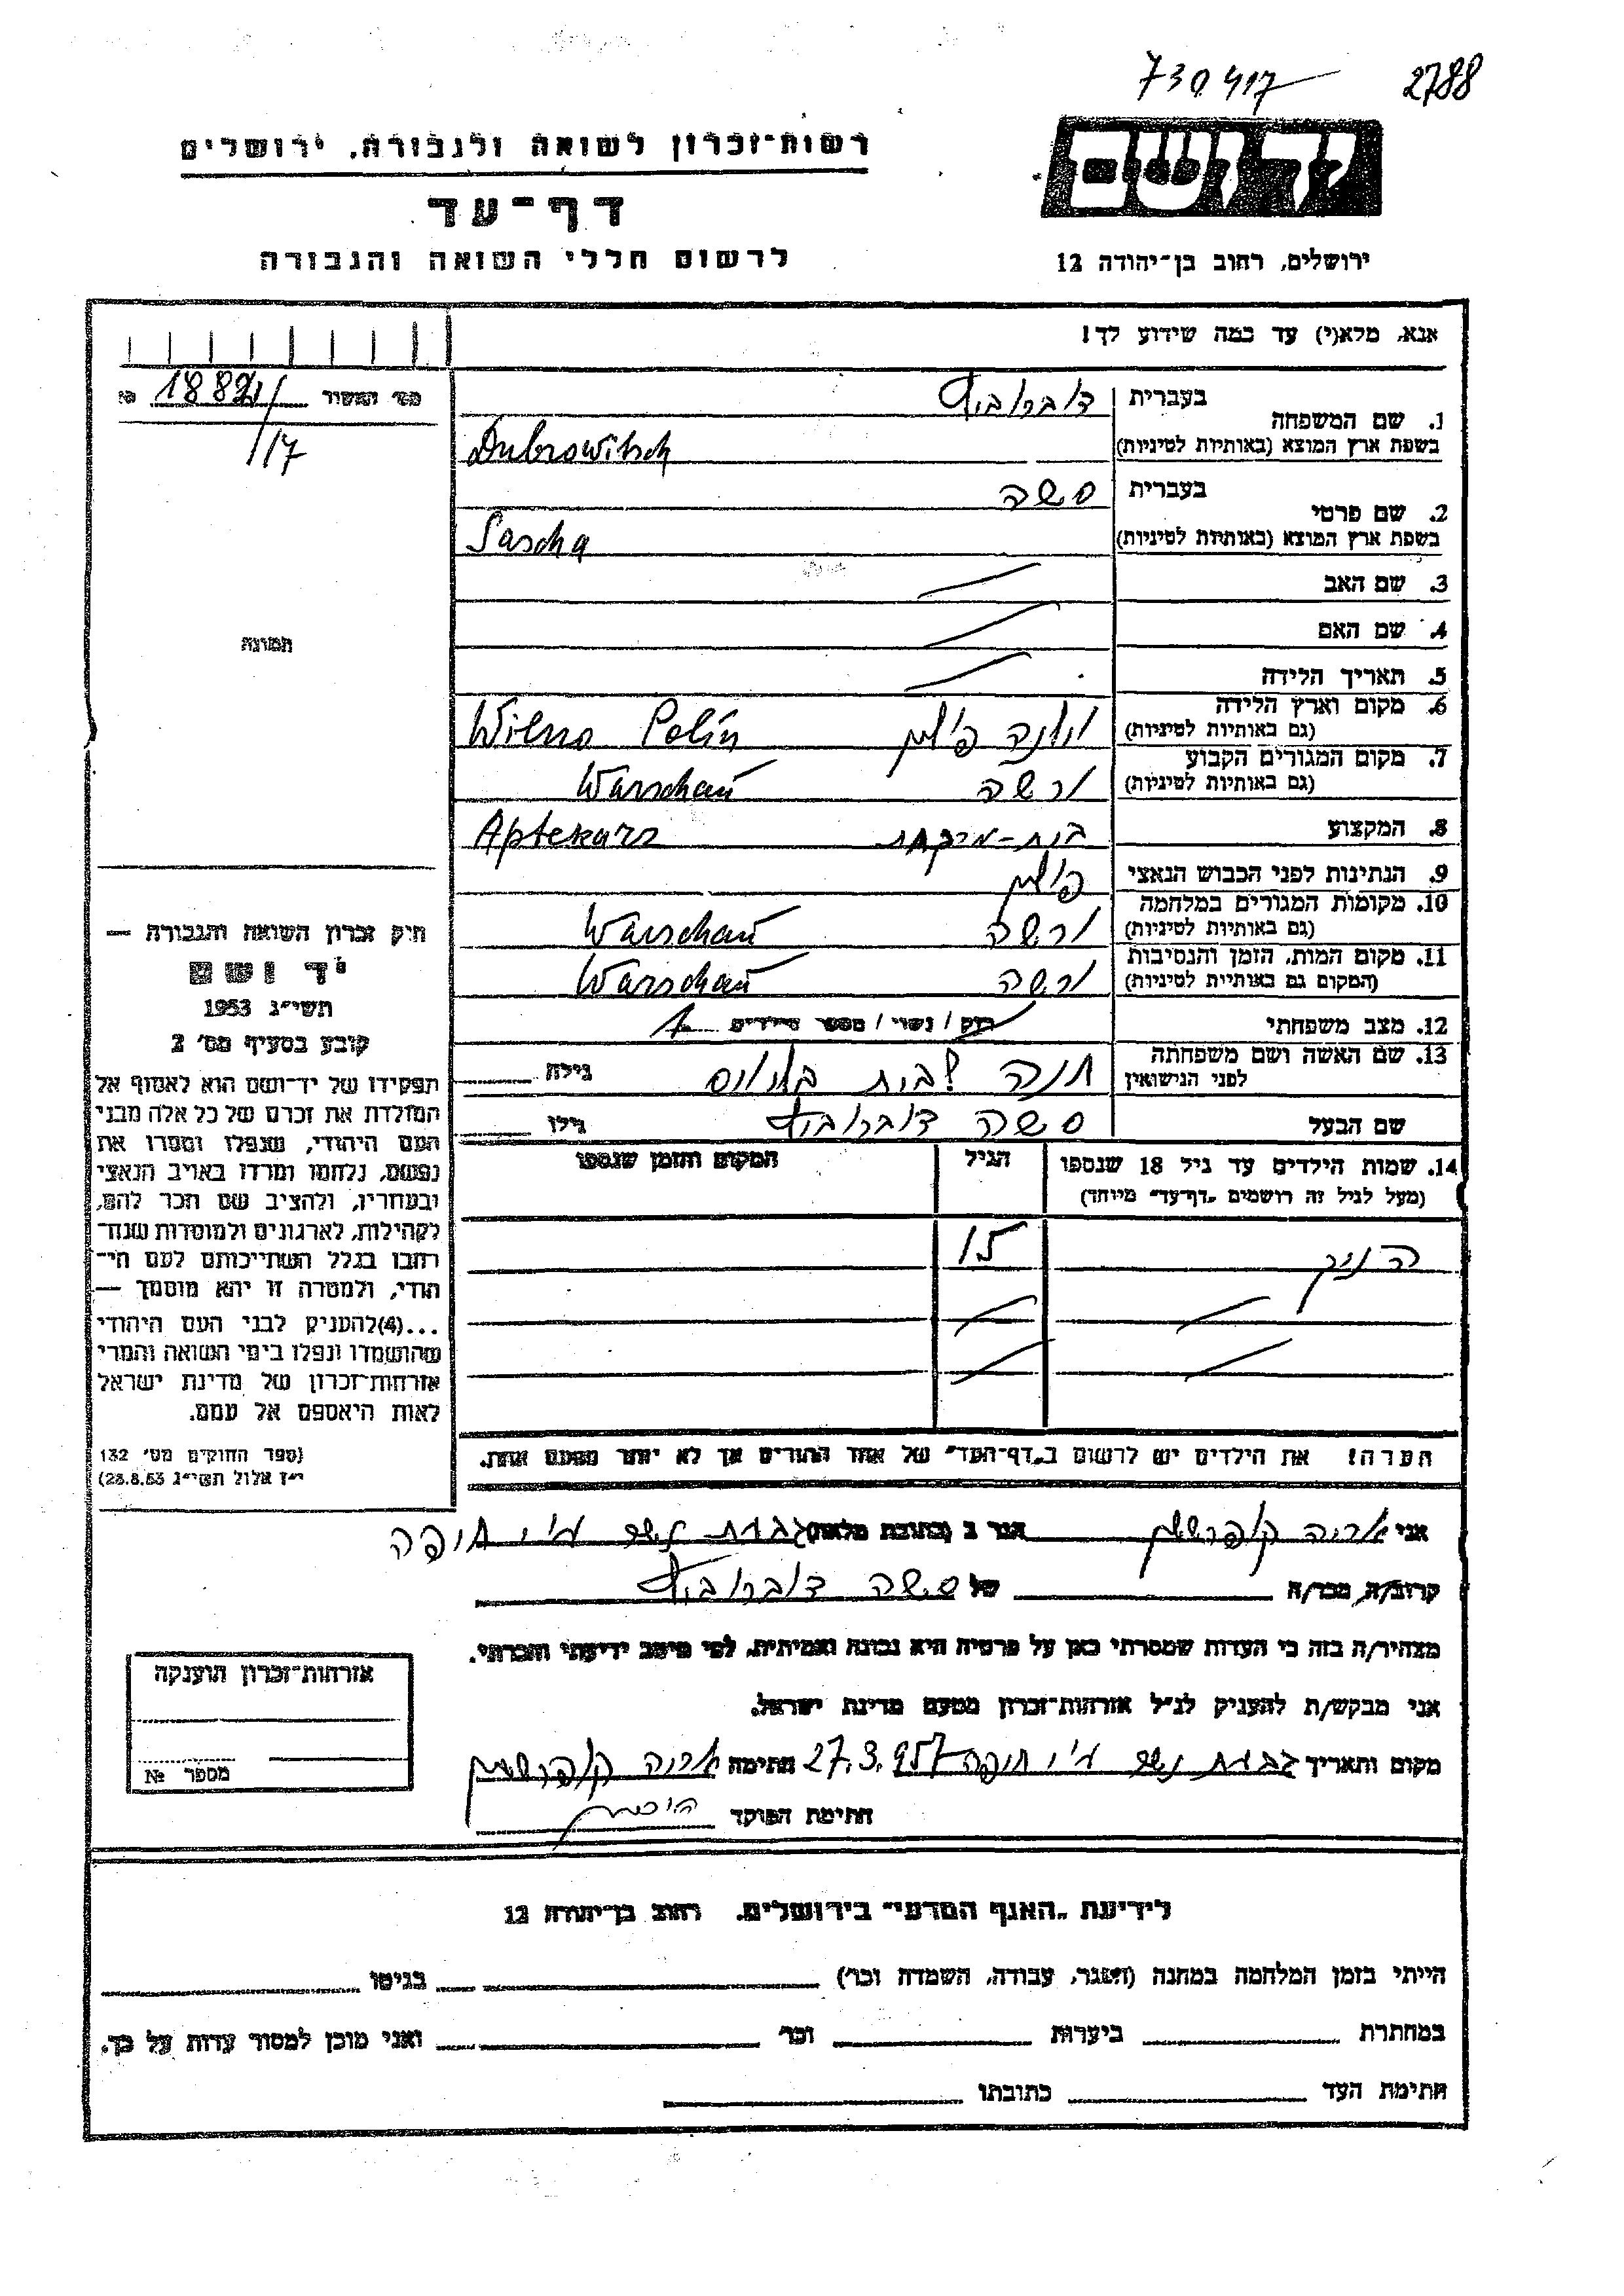 730417 2788
יד ושם
רשות-זכרון לשואה ולגבורה, ירושלים
דף-עד
לרשום חללי השואה והגבורה
ירושלים, רחוב בן-יהודה 12
אנא, מלא(י) עד כמה שידוע לך!
1. שם המשפחה
בעברית דוברוביץ
בשפת ארץ המוצא (באותיות לטיניות) Dubrowitsch
2. שם פרטי
בעברית סשה
בשפת ארץ המוצא (באותיות לטיניות) Sascha
3. שם האב
4. שם האם
5. תאריך הלידה
6. מקום וארץ הלידה
(גם באותיות לטיניות) וילנה פולין Wilno Polin
7. מקום המגורים הקבוע
(גם באותיות לטיניות) ורשה Warschau
8. המקצוע בית-מירקחת Aptekarz
9. הנתינות לפני הכבוש הנאצי פולין
10. מקומות המגורים במלחמה
(גם באותיות לטיניות) ורשה Warschau
11. מקום המות, הזמן והנסיבות
(המקום גם באותיות לטיניות) ורשה Warschau
12. מצב משפחתי רוק / נשוי / מספר הילדים 1
13. שם האשה ושם משפחתה
לפני הנישואין חנה לבית גילה
שם הבעל סשה דוברוביץ גילו
14. שמות הילדים עד גיל 18 שנספו הגיל המקום והזמן שנספו
(מעל לגיל זה רושמים „דף-עד" מיוחד)
15
הערה! את הילדים יש לרשום ב„דף-העד" של אחד ההורים אך לא יותר מפעם אחת.
מס' המשור 18821 №
/17
תמונה
חוק זכרון השואה והגבורה —
יד ושם
תשי״ג 1953
קובע בסעיף מס' 2
תפקידו של יד-ושם הוא לאסוף אל
המולדת את זכרם של כל אלה מבני
העם היהודי, שנפלו ומסרו את
נפשם, נלחמו ומרדו באויב הנאצי
ובעוזריו, ולהציב שם וזכר להם,
לקהילות, לארגונים ולמוסדות שנח־
רבו בגלל השתייכותם לעם הי־
הודי, ולמטרה זו יהא מוסמך —
...(4) להעניק לבני העם היהודי
שהושמדו ונפלו בימי השואה והמרי
אזרחות-זכרון של מדינת ישראל
לאות היאספם אל עמם.
(ספר החוקים מס' 132
י״ז אלול תשי״ג 28.8.53)
אני אריה קופרשטין הגר ב (כתובת מלאה) גבעת נשר ע״י חיפה
קרוב/ה, מכר/ה של סשה דוברוביץ
מצהיר/ה בזה כי העדות שמסרתי כאן על פרטיה היא נכונה ואמיתית, לפי מיטב ידיעתי והכרתי.
אני מבקש/ת להעניק לנ״ל אזרחות-זכרון מטעם מדינת ישראל.
מקום ותאריך גבעת נשר ע״י חיפה 27.3.957 חתימה אריה קופרשטין
חתימת הפוקד
אזרחות-זכרון הוענקה
מספר №
לידיעת „האגף המדעי" בירושלים. רחוב בן-יהודה 12
הייתי בזמן המלחמה במחנה (הסגר, עבודה, השמדה וכו') בגיטו
במחתרת ביערות וכו' ואני מוכן למסור עדות על כך.
חתימת העד כתובתו